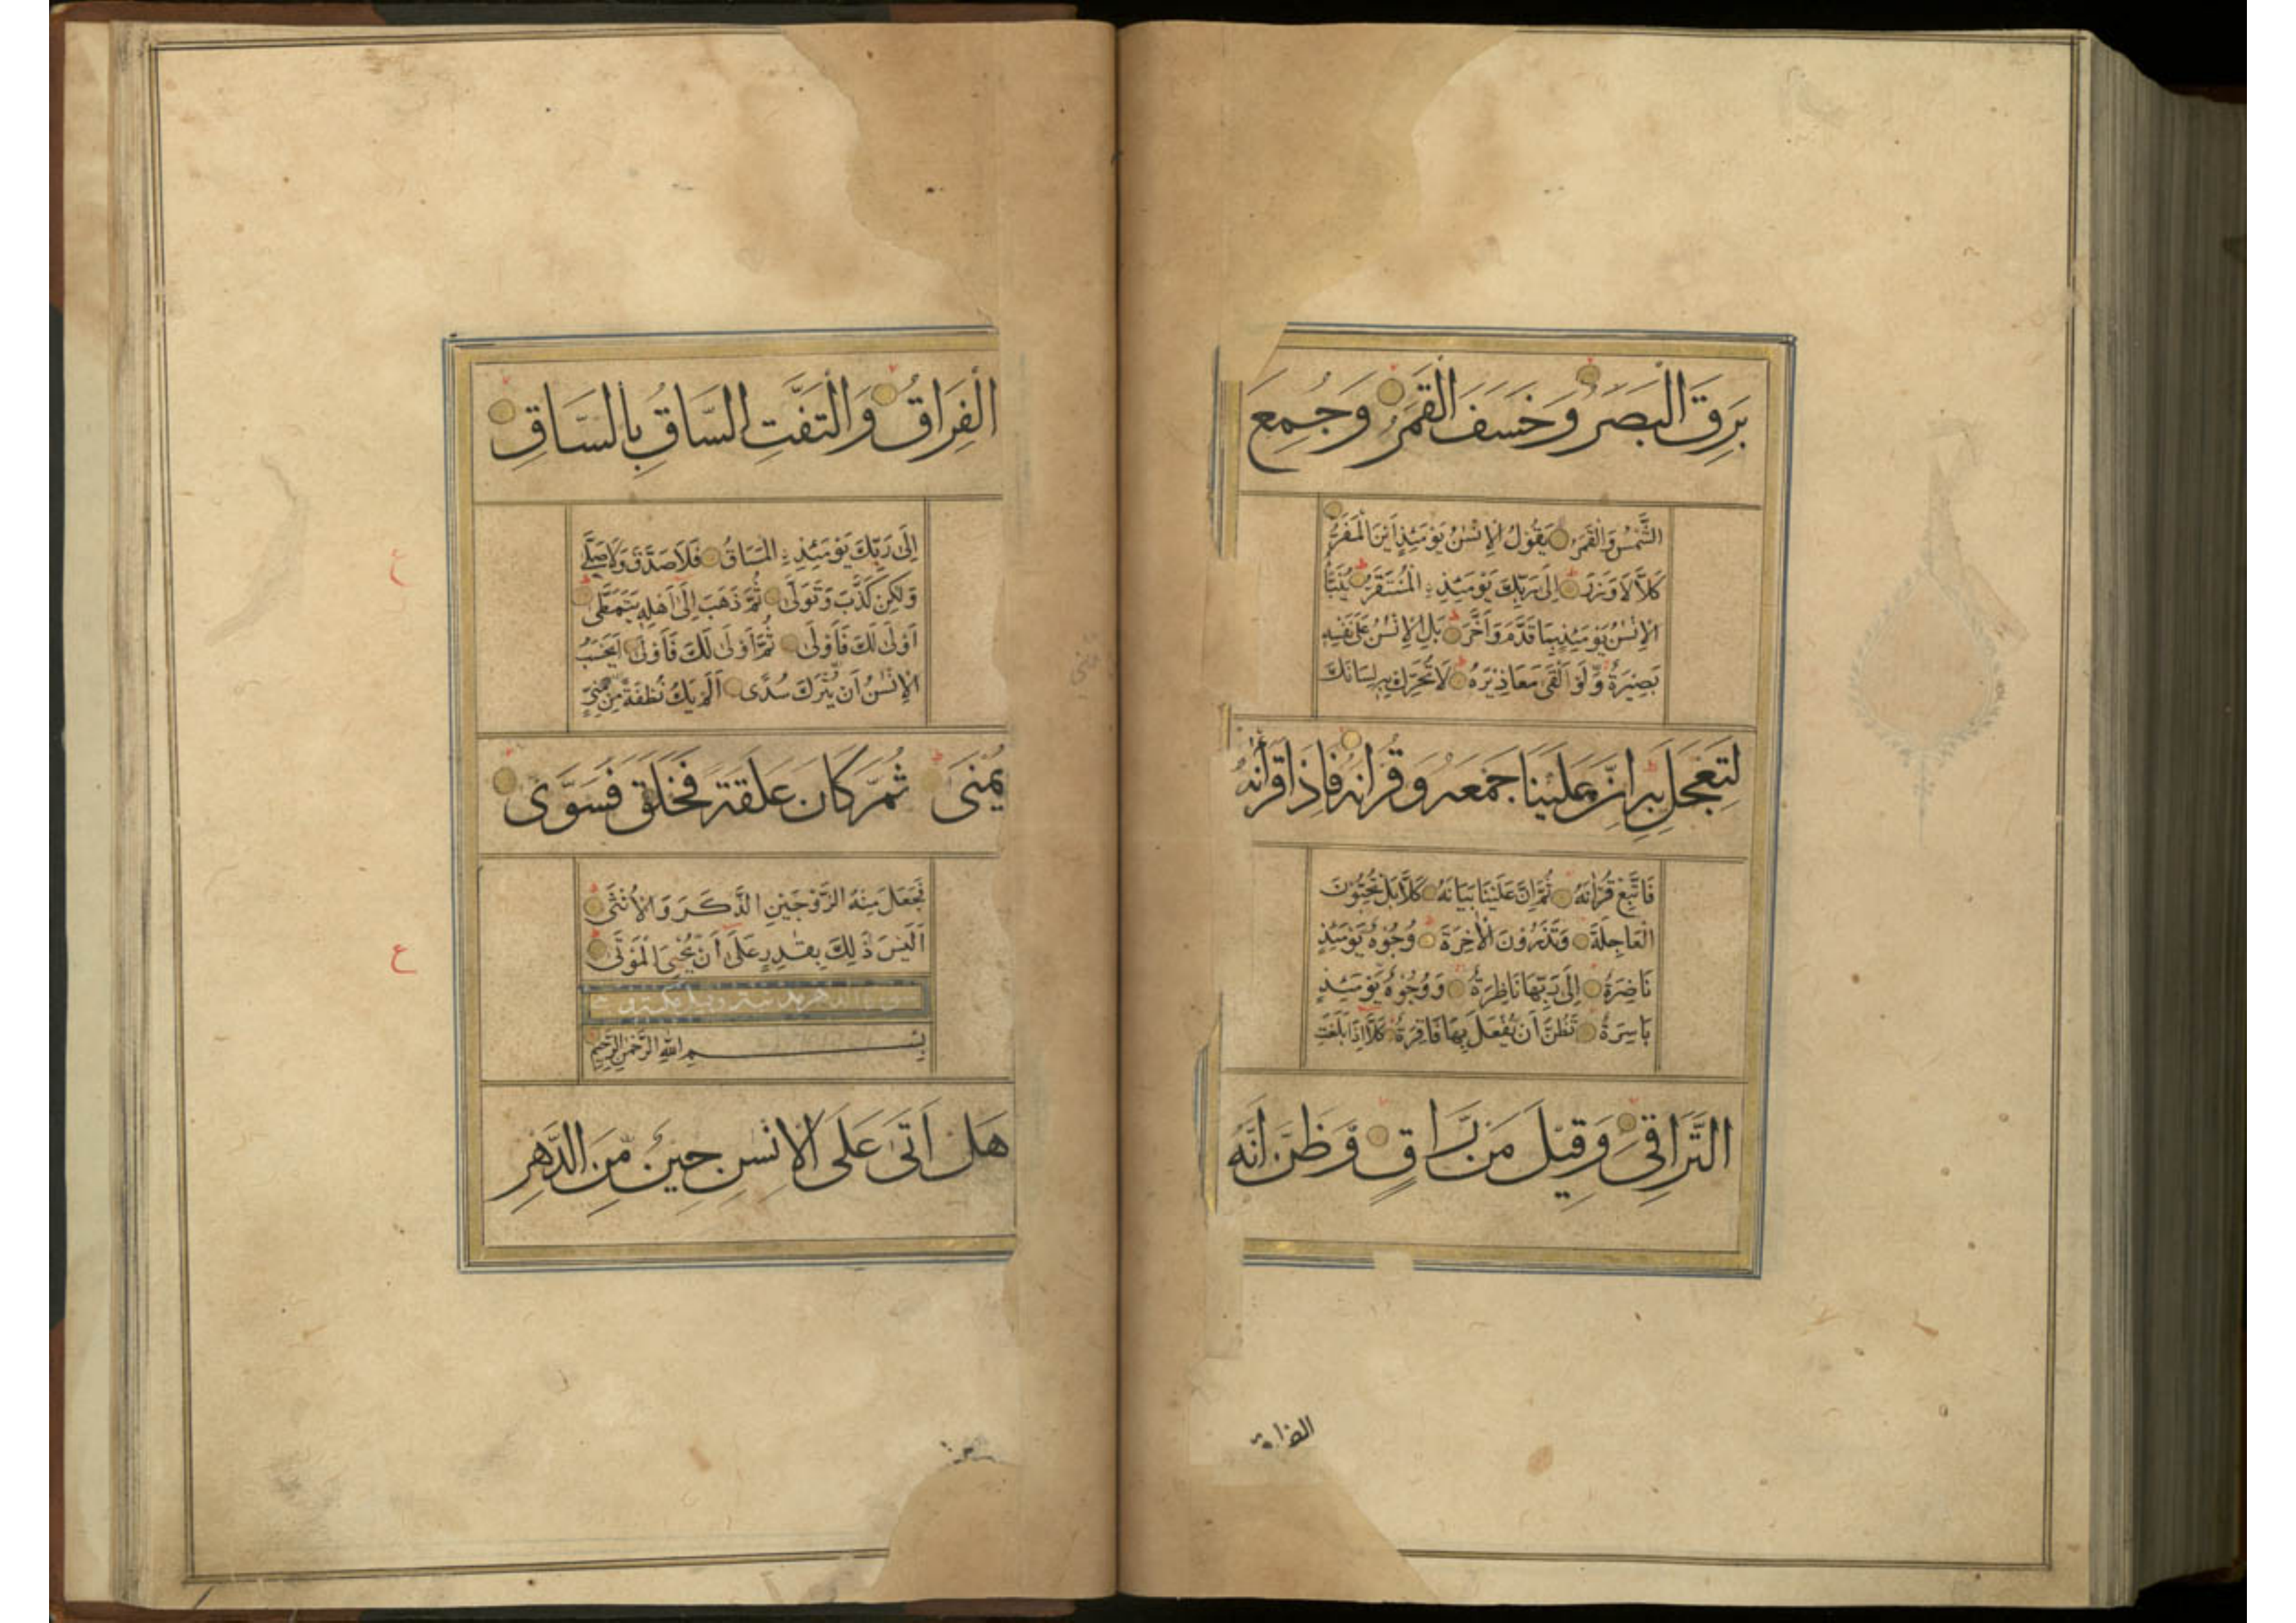 بَرِقَ الْبَصَرُ وَخَسَفَ الْقَمَرُ وَجُمِعَ
الشَّمْسُ وَالْقَمَرُ يَقُولُ الْاِنْسٰنُ يَوْمَئِذٍ اَيْنَ الْمَفَرُّ
كَلَّا لَا وَزَرَ اِلٰى رَبِّكَ يَوْمَئِذِ ۣالْمُسْتَقَرُّ يُنَبَّأُ
الْاِنْسٰنُ يَوْمَئِذٍ بِمَا قَدَّمَ وَاَخَّرَ بَلِ الْاِنْسٰنُ عَلٰى نَفْسِهِ
بَصِيْرَةٌ وَّلَوْ اَلْقٰى مَعَاذِيْرَهُ لَا تُحَرِّكْ بِهِ لِسَانَكَ
لِتَعْجَلَ بِهِ اِنَّ عَلَيْنَا جَمْعَهُ وَقُرْاٰنَهُ فَاِذَا قَرَأْنٰهُ
فَاتَّبِعْ قُرْاٰنَهُ ثُمَّ اِنَّ عَلَيْنَا بَيَانَهُ كَلَّا بَلْ تُحِبُّوْنَ
الْعَاجِلَةَ وَتَذَرُوْنَ الْاٰخِرَةَ وُجُوْهٌ يَّوْمَئِذٍ
نَاضِرَةٌ اِلٰى رَبِّهَا نَاظِرَةٌ وَوُجُوْهٌ يَّوْمَئِذٍ
بَاسِرَةٌ تَظُنُّ اَنْ يُّفْعَلَ بِهَا فَاقِرَةٌ كَلَّا اِذَا بَلَغَتِ
التَّرَاقِيَ وَقِيْلَ مَنْ رَاقٍ وَّظَنَّ اَنَّهُ
الْفِرَاقُ وَالْتَفَّتِ السَّاقُ بِالسَّاقِ
اِلٰى رَبِّكَ يَوْمَئِذِ ۣالْمَسَاقُ فَلَا صَدَّقَ وَلَا صَلّٰى
وَلٰكِنْ كَذَّبَ وَتَوَلّٰى ثُمَّ ذَهَبَ اِلٰى اَهْلِهِ يَتَمَطّٰى
اَوْلٰى لَكَ فَاَوْلٰى ثُمَّ اَوْلٰى لَكَ فَاَوْلٰى اَيَحْسَبُ
الْاِنْسٰنُ اَنْ يُّتْرَكَ سُدًى اَلَمْ يَكُ نُطْفَةً مِّنْ مَّنِيٍّ
يُمْنٰى ثُمَّ كَانَ عَلَقَةً فَخَلَقَ فَسَوّٰى
فَجَعَلَ مِنْهُ الزَّوْجَيْنِ الذَّكَرَ وَالْاُنْثٰى
اَلَيْسَ ذٰلِكَ بِقٰدِرٍ عَلٰى اَنْ يُّحْيِيَ الْمَوْتٰى
بِسْمِ اللّٰهِ الرَّحْمٰنِ الرَّحِيْمِ
هَلْ اَتٰى عَلَى الْاِنْسٰنِ حِيْنٌ مِّنَ الدَّهْرِ
ع
ع